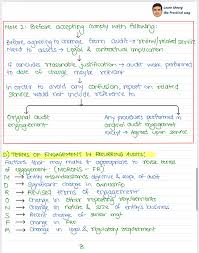 Learn theory
the Practical way
Note 2: Before accepting comply with following:
Before agreeing to change from audit → review/related service
Need to assess → Legal & contractual implication
If concludes reasonable justification → audit work performed
to date of change maybe relevant
In order to avoid any confusion, report on related
service would not include reference to
Original Audit
engagement
Any procedures performed in
original audit engagement
except → Agreed upon service
D) TERMS OF ENGAGEMENT IN RECURRING AUDITS:
Factors that may make it appropriate to revise terms
of engagement:
M → Entity misunderstands objective & scope of audit
O → Significant change in ownership
R → Revised terms of engagement
O → Change in other reporting requirements
N → Change in nature & size of entity's business
S → Recent change of senior mgt
F → Change in
R → Change in legal & regulatory requirement
8